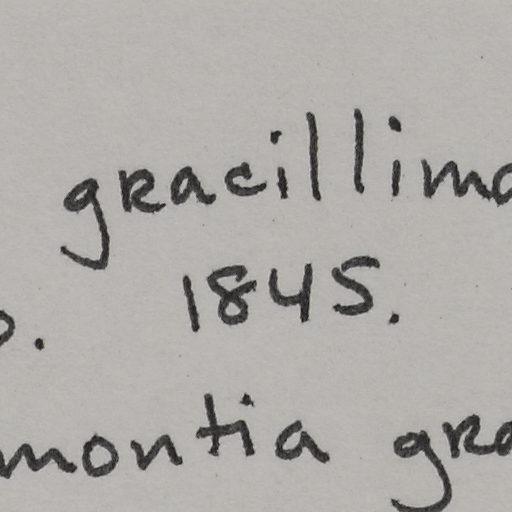 gracillima
1845.
montia gra